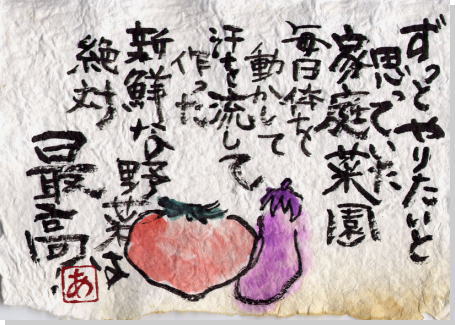 ずっとやりたいと
思っていた
家庭菜園
毎日体を
動かして
汗を流して、
作った
新鮮な野菜は
絶対
最高!
あ